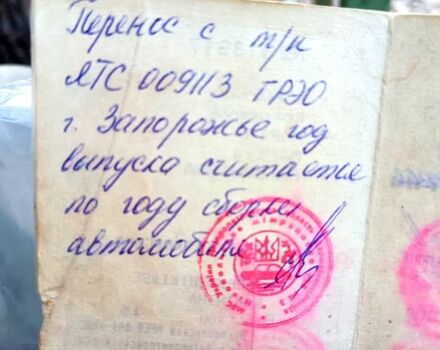 Перенос с т/п
ЯТС 009113 ГРЭО
г. Запорожье год
выпуска считается
по году сборки
автомобиля